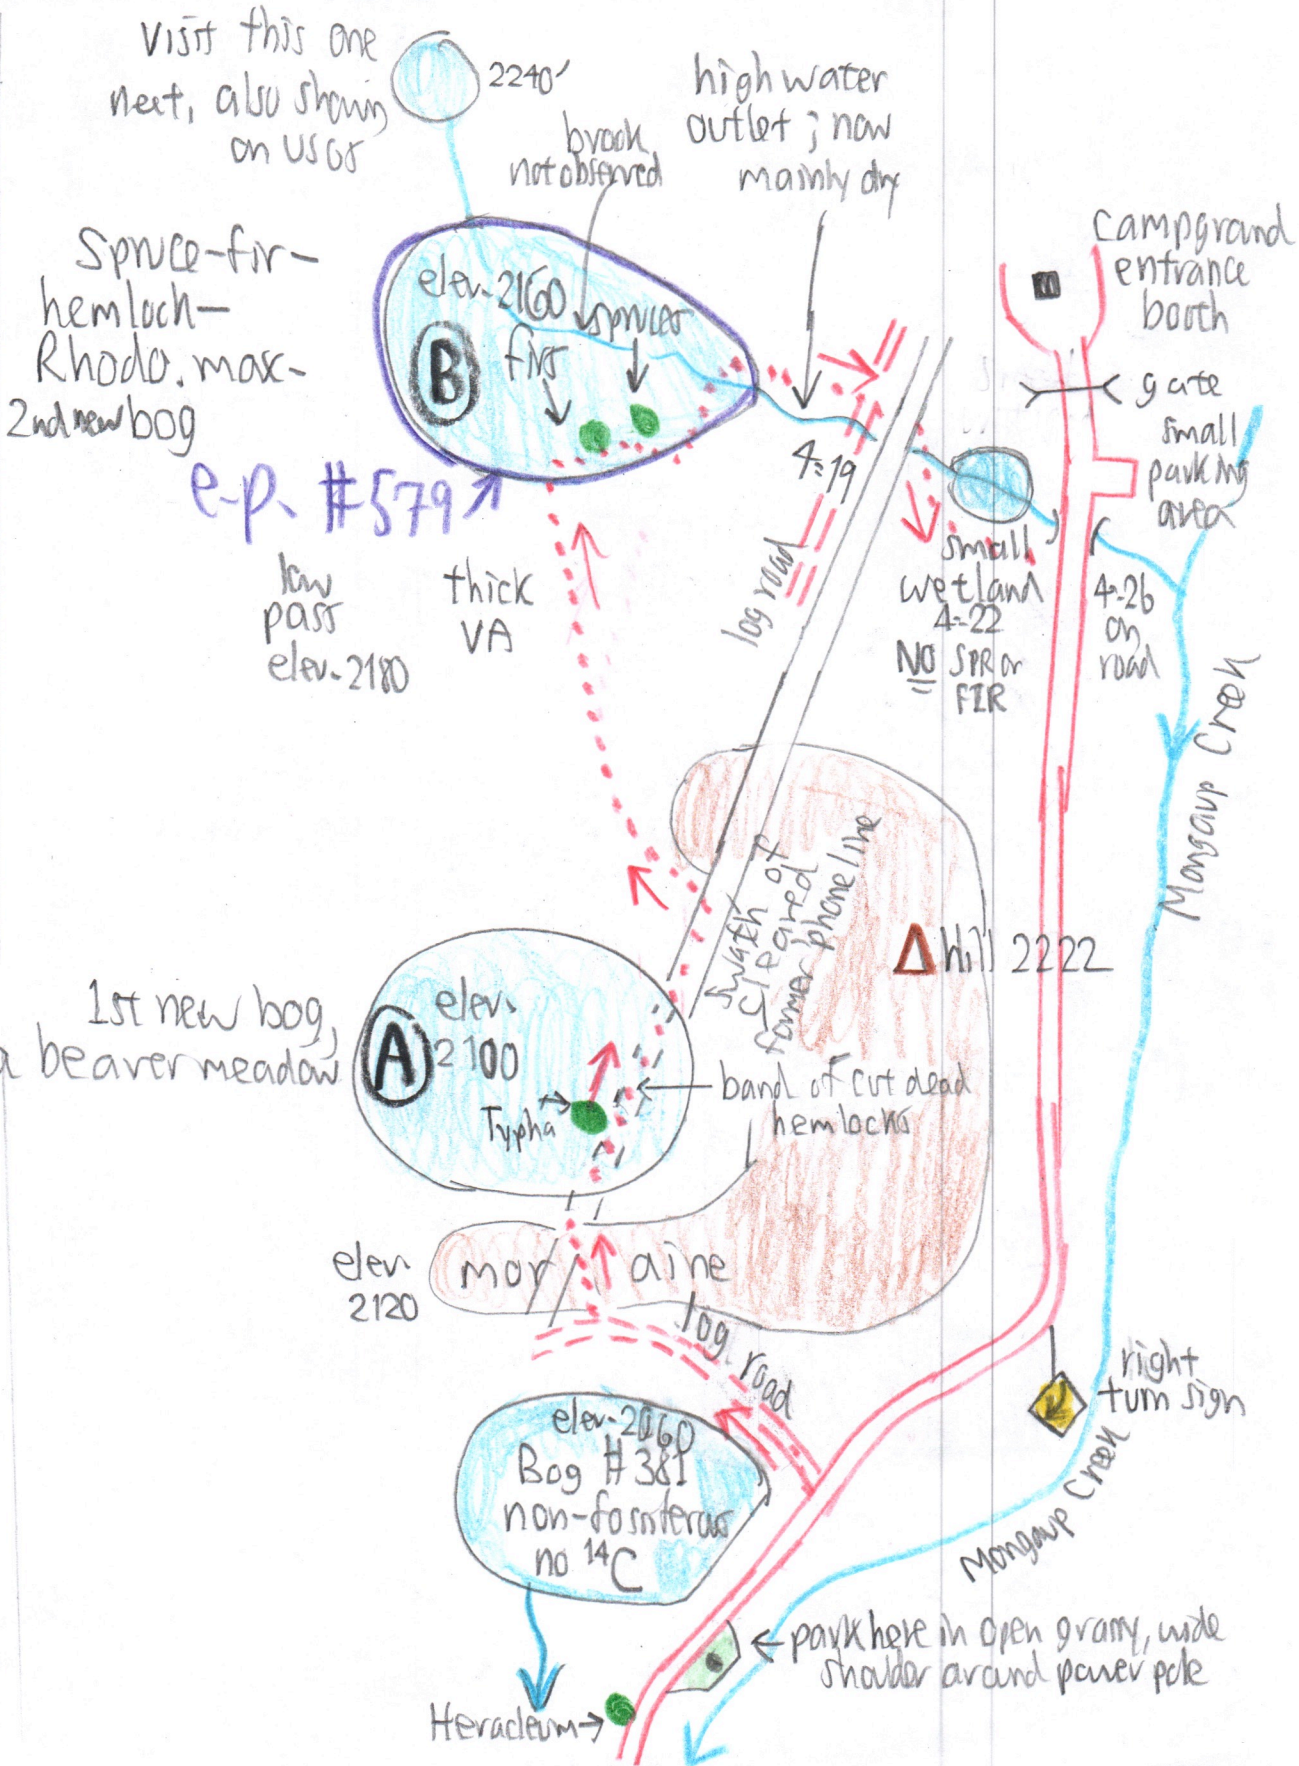 Visit this one
next, also shown
on USGS
2240'
brook
not observed
high water
outlet ; now
mainly dry
campground
entrance
booth
gate
small
parking
area
Spruce-fir-
hemlock-
Rhodo. max-
2nd new bog
elev. 2160
B
firs
spruces
e.p. #579
4:19
log road
small
wetland
4:22
NO SPR or
FIR
4:26
on
road
low
pass
elev. 2180
thick
VA
Mongaup Creek
swath of
cleared
former phone line
Hill 2222
1st new bog,
a beaver meadow
A
elev.
2100
Typha
band of cut dead
hemlocks
elev
2120
moraine
log road
right
turn sign
elev. 2060
Bog #381
no 14C
Mongaup Creek
park here in open grassy, wide
shoulder around power pole
Heracleum